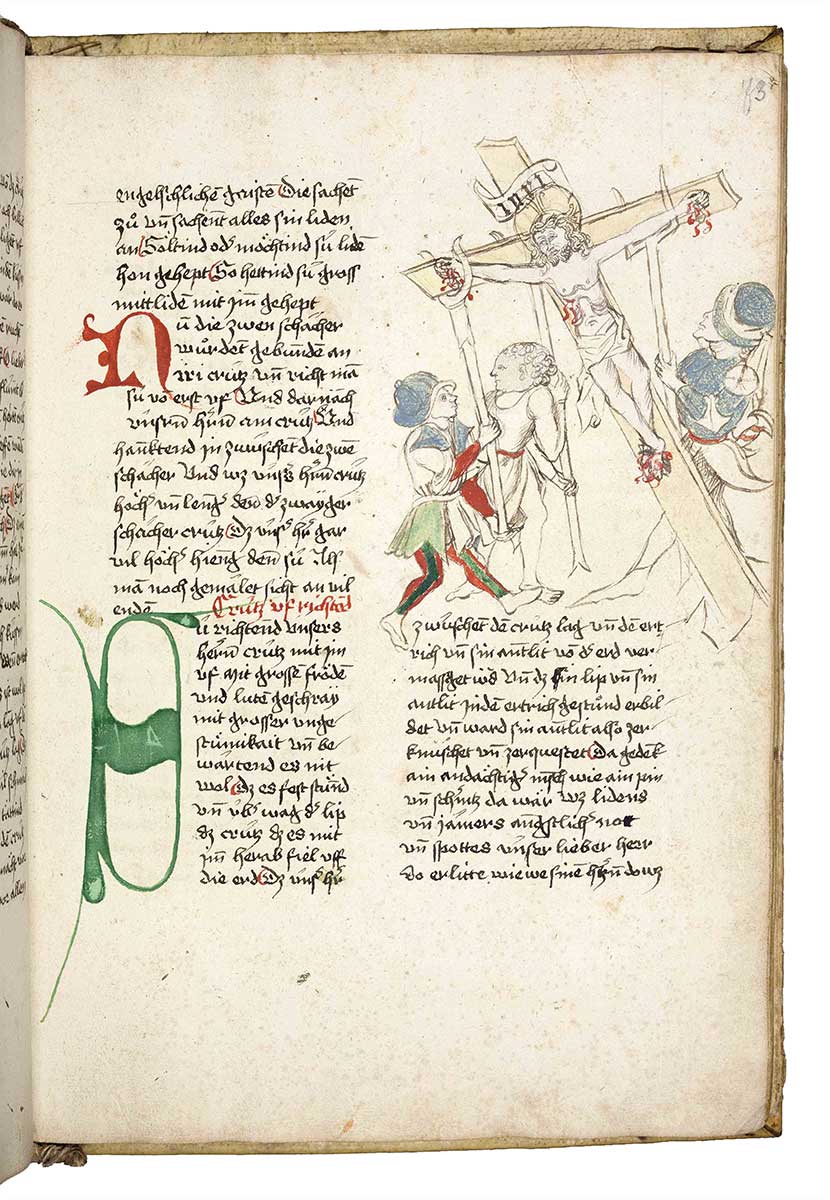 73
INRI
engelschlichen geisten Die sachent
zů vn̄ sachent alles sin liden
an Soltind od' möchtind sú lidē
hon gehept So hettind sú gross
mittliden mit jm gehept
Nū die zwen schächer
wurdēt gebundē an
iri crútz vn̄ richt mā
sú vō erst vf Vnd darnach
vnsern h'rn am crútz Vnd
hanktend in zwúschēt die zwē
schächer Vnd wz vnsers h'rn crútz
höch' vn̄ leng' den d' zwayger
schächer crútz Dz vns' h'r gar
vil höch' hieng den sú Als
mā noch gemălet sicht an vil
enden Crútz vf richtād
Dú richtend vnsers
herrn crútz mit jm
vf Mit grossen fröden
vnd lutē geschray
mit grosser vnge
stúmikait vn̄ be
wartend es nit
wol Dz es fest stúnd
vn̄ úb' wag d' lip
dz crútz dz es mit
jm herab fiel vff
die erd Dz vns' h'r
zwúschet dē crútz lag vn̄ dē ert
rich vn̄ sin antlit vō d' erd ver
massget wd Vn̄ dz sin lip vn̄ sin
antlit jn dē ertrich gestůnd erbil
det vn̄ ward sin antlit also zer
knúschet vn̄ zerquestet Da gedēk
ain andächtig' mēsch wie ain pin
vn̄ schintz da wär wz lidens
vn̄ jamers angstlich' nott
vn̄ spottes vnser lieber herr
do erlitte wie we sinē h'tzn̄ do wz